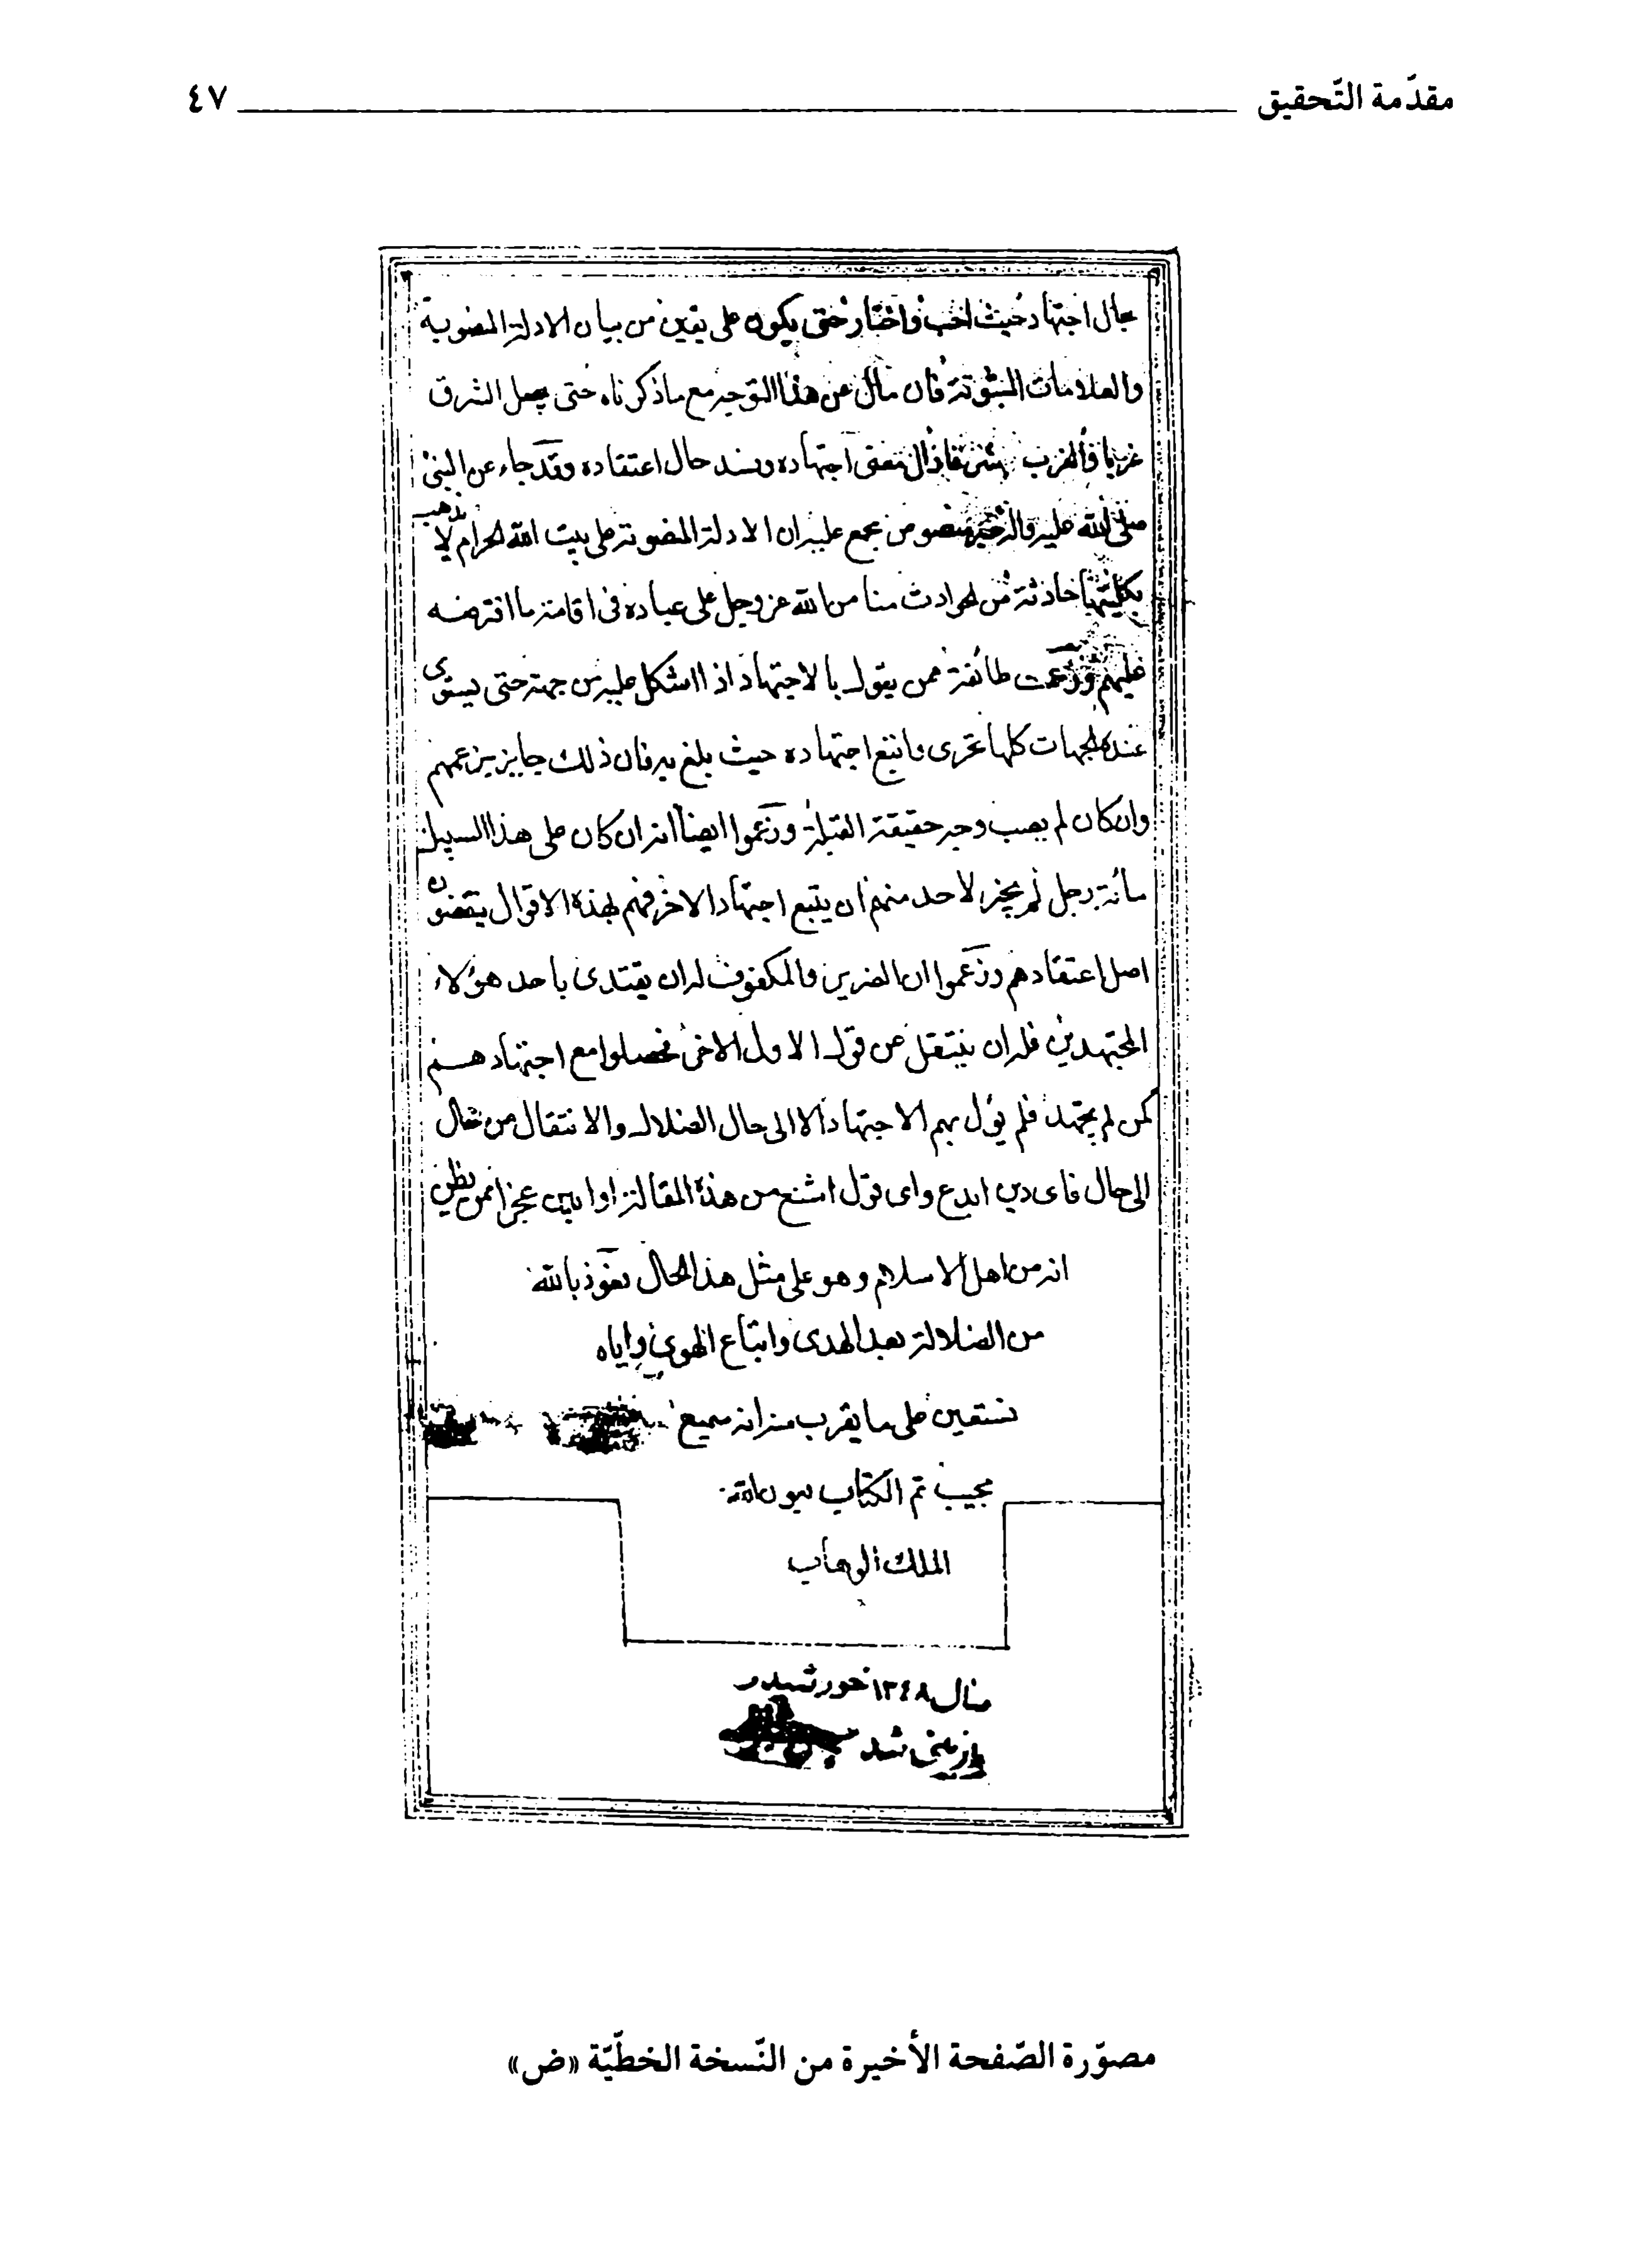 مقدّمة التّحقيق ٤٧
بحال اجتهاد حيث احب واختار حتى يكون على يقين من بيان الادلة المنصوبة
والعلامات المبثوثة فان مال عن هذا التوجه مع ما ذكرناه حتى يجعل الشرق
غربا والغرب شرقا زال معنى اجتهاده وفسد حال اعتقاده وقد جاء عن النبي
صلى الله عليه واله خبر منصوص مجمع عليه ان الادلة المنصوبة على بيت الله الحرام لا تذهب
بكليتها بحادثة من الحوادث منا من الله عز وجل على عباده في اقامة ما افترضه
عليهم وزعمت طائفة ممن يقول بالاجتهاد اذا اشكل عليه من جهة حتى يستوى
عنده الجهات كلها تحرى واتبع اجتهاده حيث بلغ به فان ذلك جايز بزعمهم
وان كان لم يصب وجه حقيقة القبلة وزعموا ايضا انه ان كان على هذا السبيل
مائة رجل لم يجز لاحد منهم ان يتبع اجتهاد الاخر فهم بهذه الاقوال ينقضون
اصل اعتقادهم وزعموا ان الضرير والمكفوف له ان يقتدى باحد هؤلاء
المجتهدين فله ان ينتقل عن قول الاول الى الاخر فحصلوا مع اجتهادهم
كمن لم يجتهد فلم يؤل بهم الاجتهاد الا الى حال الضلال والانتقال من حال
الى حال فاى دين ابدع واى قول اشنع من هذه المقالة او ابين عجزا ممن يظن
انه من اهل الاسلام وهو على مثل هذا الحال نعوذ بالله
من الضلالة بعد الهدى واتباع الهوى واياه
نستعين على ما يقرب منه انه سميع
مجيب تم الكتاب بعون الله
الملك الوهاب
سال ١٣٤٨ خورشيدى
بازبينى شد
مصوّرة الصّفحة الأخيرة من النّسخة الخطّيّة «ض»